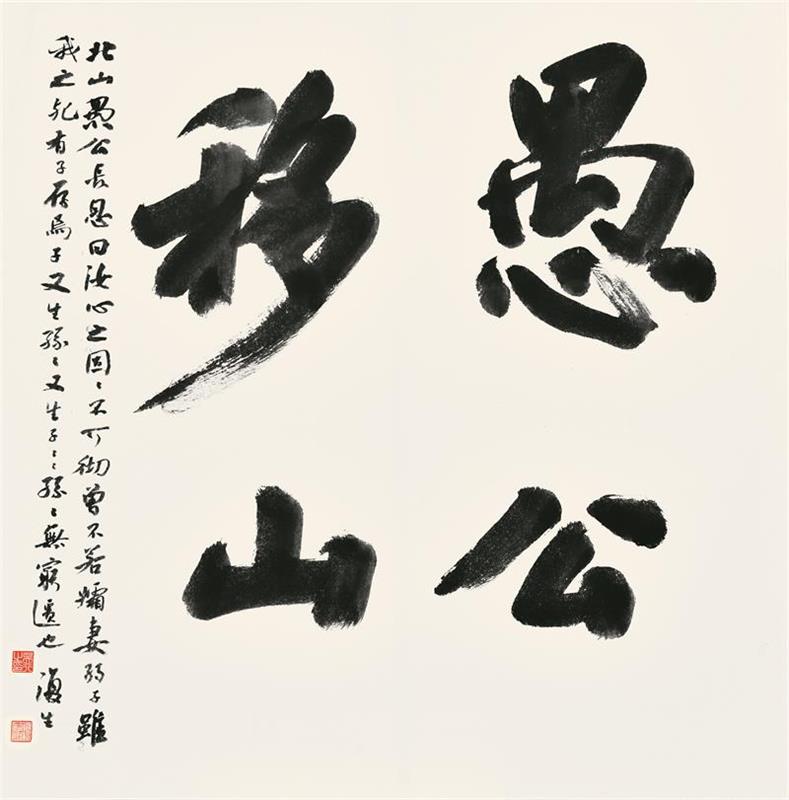 愚公
移山
北山愚公長息曰汝心之固々不可彻曾不若孀妻弱子雖
我之死有子存焉子又生孫々又生子々々孫々無窮匱也